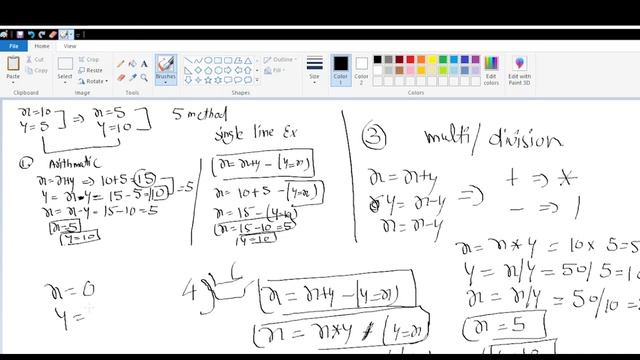 File Home View
Cut
Copy
Paste
Clipboard
Crop
Resize
Rotate
Select
Image
Tools
Brushes
Outline
Fill
Shapes
Size
Color 1
Color 2
Colors
Edit colors
Edit with Paint 3D
x=10
y=5
⇒ x=5
y=10
5 method
single line Ex
③ multi/division
① Arithmatic
x=x+y ⇒ 10+5=15
y = x-y = 15-5=10 =5
x = x-y = 15-10=5
x=5
y=10
x=x+y-(y=x)
x=10+5-(y=x)
x=15-(y=10)
x=15-10=5
y=10
x=x+y
y=x-y ⇒
x=x-y
+ ⇒ *
- ⇒ /
x=x*y = 10x5=5
y=x/y = 50/5=10
x=x/y = 50/10=
x=5
x=0
y=
4
x=x+y-(y=x)
x=x*y/(y=x)